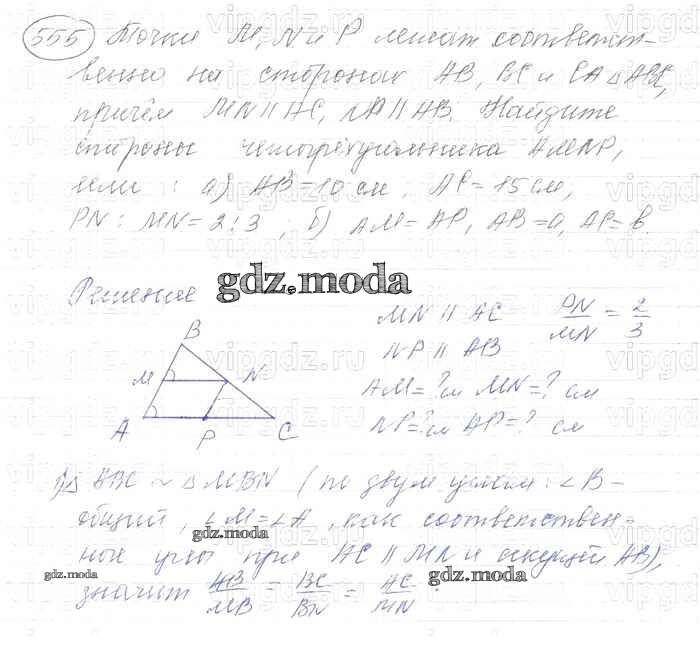 555 Точки M, N и P лежат соответст-
венно на сторонах AB, BC и CA △ABC,
причём MN || AC, NP || AB. Найдите
стороны четырёхугольника AMNP,
если : а) AB = 10 см, AC = 15 см,
PN : MN = 2 : 3 ; б) AM = AP, AB = a, AC = b.
Решение gdz.moda
MN || AC PN/MN = 2/3
NP || AB
AM = ? см MN = ? см
NP = ? см AP = ? см
B
M N
A P C
1) △ ABC ~ △ MBN (по двум углам: ∠B -
общий, ∠M = ∠A, как соответствен-
gdz.moda
ные углы при AC || MN и секущей AB),
gdz.moda gdz.moda
значит AB/MB = BC/BN = AC/MN
vipgdz.ru